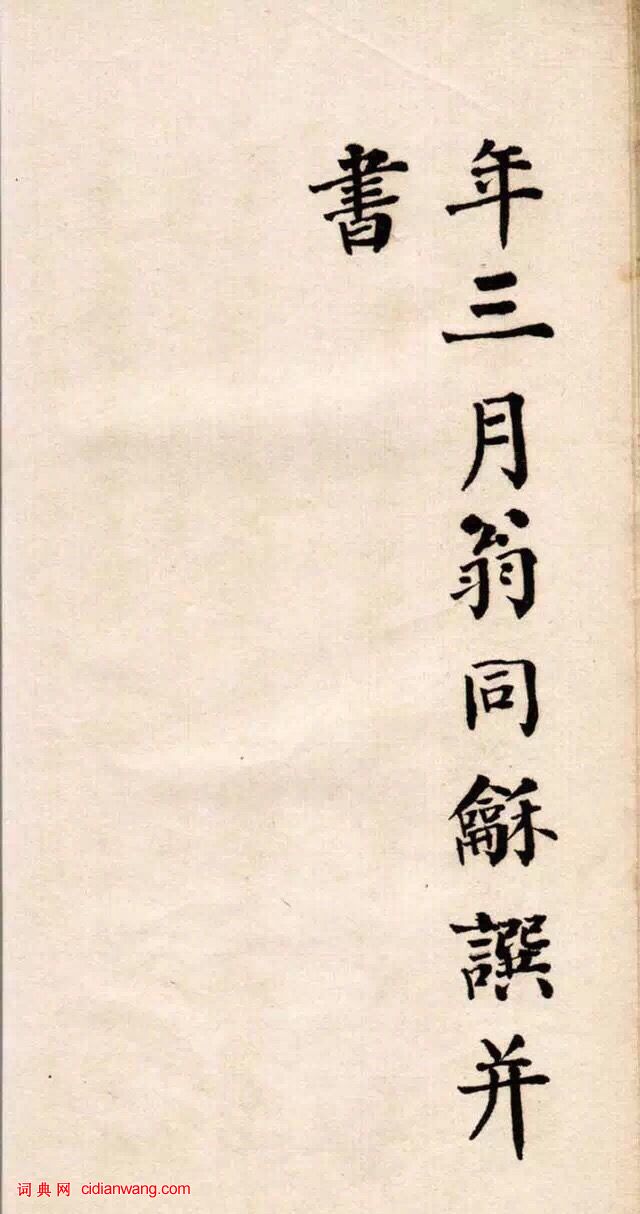 年三月翁同龢譔并
書
词典网 cidianwang.com